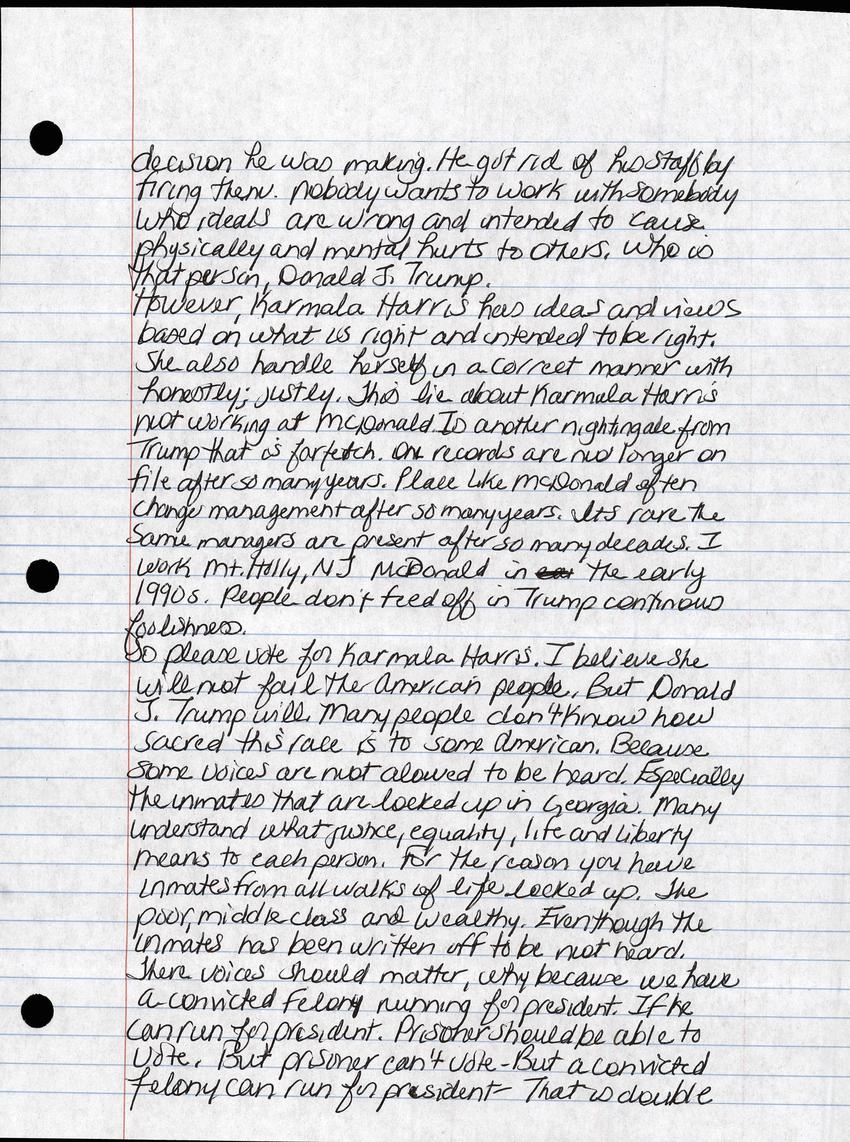 decision he was making. He got rid of his staff by
firing them. nobody wants to work with somebody
who ideals are wrong and intended to cause
physically and mental hurts to others. Who is
that person, Donald J. Trump.
However, Karmala Harris has ideas and views
based on what is right and intended to be right.
She also handle herself in a correct manner with
honestly; justly. This lie about Karmala Harris
not working at McDonald Is another nightingale from
Trump that is farfetch. One records are no longer on
file after so many years. Place like McDonald often
change management after so many years. It's rare the
same managers are present after so many decades. I
work Mt. Holly, NJ McDonald in the early
1990s. People don't feed off in Trump continous
foolishness.
So please vote for Karmala Harris. I believe she
will not fail the American people. But Donald
J. Trump will. Many people don't know how
sacred this race is to some American. Because
some voices are not alowed to be heard. Especially
the inmates that are locked up in Georgia. Many
understand what justice, equality, life and liberty
means to each person. For the reason you have
inmates from all walks of life locked up. The
poor, middle class and wealthy. Eventhough the
inmates has been written off to be not heard.
There voices should matter, why because we have
a convicted felony running for president. If he
can run for president. Prisoner should be able to
vote. But prisoner can't vote - But a convicted
felony can run for president - That is double